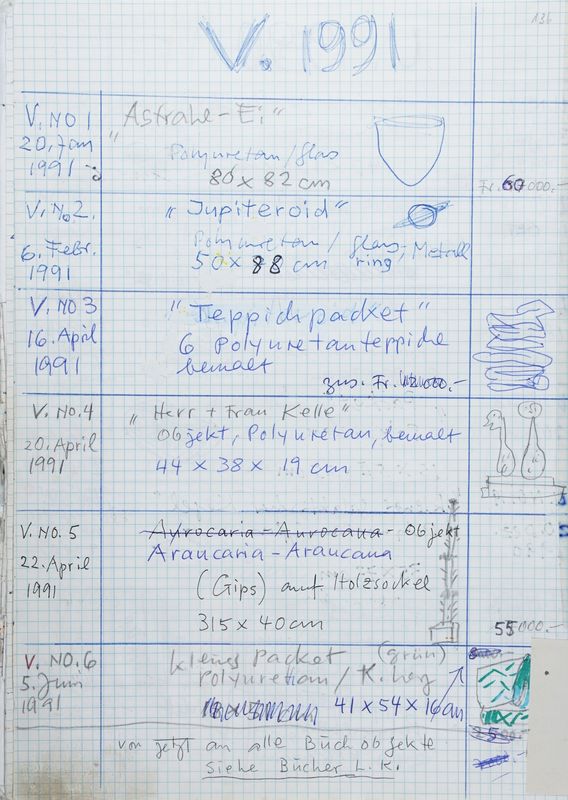 136
V. 1991
V. NO 1
20. Jan
1991
"Astrahe-Ei"
Polyuretan/glas
80 x 82 cm
Fr. 60 000.-
V. No 2.
6. Febr.
1991
"Jupiteroid"
Polyuretan / glas, Metall
ring,
50 x 88 cm
V. NO 3
16. April
1991
"Teppichpacket"
6 Polyuretanteppiche
bemalt
zus. Fr.
V. NO. 4
20. April
1991
"Herr + Frau Kelle"
Objekt, Polyuretan, bemalt
44 x 38 x 19 cm
V. NO. 5
22. April
1991
Aurocaria-Aurocana - Objekt
Araucaria-Araucana
(Gips) auf Holzsockel
315 x 40 cm
55 000.-
V. NO. 6
5. Juni
1991
kleines Packet (grün)
polyuretan / K.
41 x 54 x 16 cm
von jetzt an alle Buchobjekte
siehe Bücher L. K.